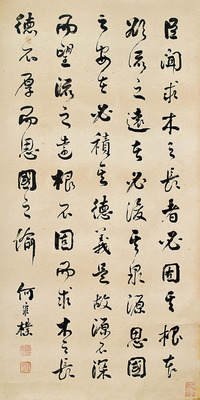 臣聞求木之長者必固其根本
欲流之遠者必浚其泉源思國
之安者必積其德義是故源不深
而望流之遠根不固而求木之長
德不厚而思國之
何維樸